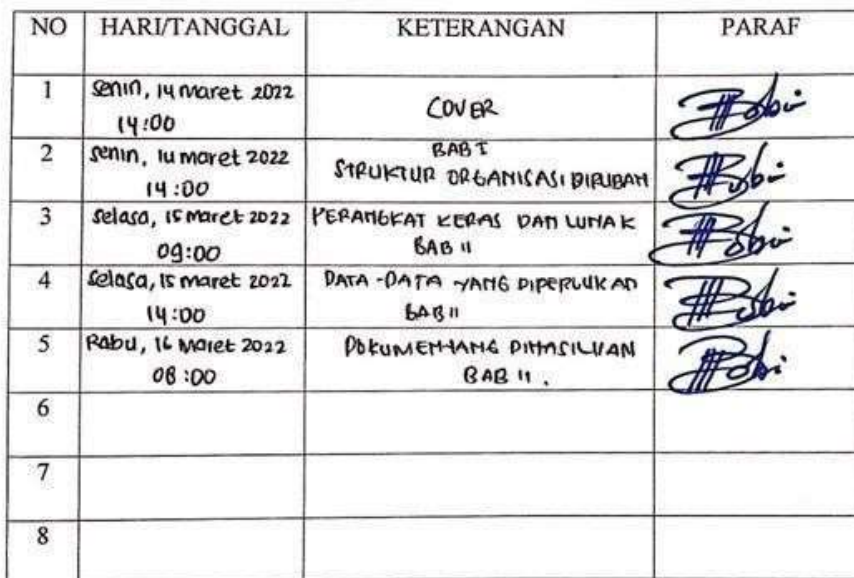 NO HARI/TANGGAL KETERANGAN PARAF
1 Senin, 14 Maret 2022 COVER
14:00
2 Senin, 14 Maret 2022 BAB I
14:00 STRUKTUR ORGANISASI DIRUBAH
3 Selasa, 15 Maret 2022 PERANGKAT KERAS DAN LUNAK
09:00 BAB II
4 Selasa, 15 Maret 2022 DATA-DATA YANG DIPERLUKAN
14:00 BAB II
5 Rabu, 16 Maret 2022 DOKUMEN YANG DIHASILKAN
08:00 BAB II.
6
7
8